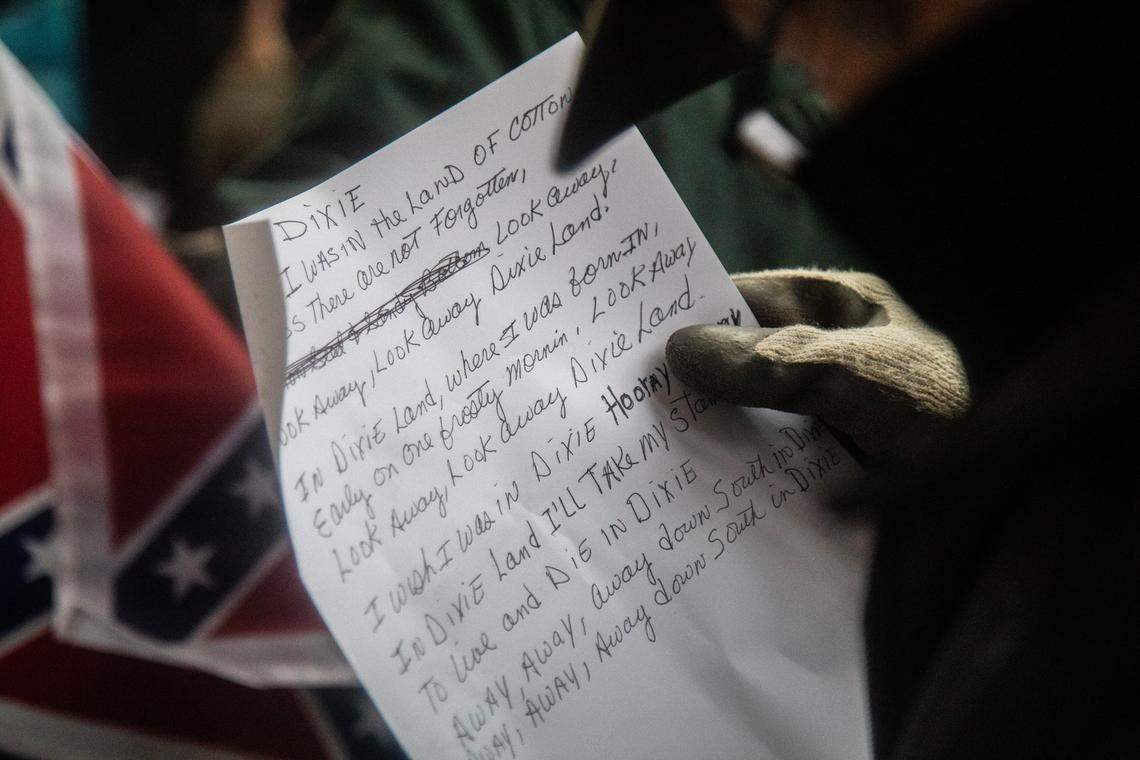 DIXIE
I WAS IN the LAND OF COTTON
THERE are not Forgotten,
Look away.
ook Away, Look away Dixie Land.
IN DIXIE Land, where I was Born IN,
Early on one frosty mornin, Look Away
Look Away, Look away Dixie Land.
I wish I was in DIXIE HOORAY
IN DIXIE Land I'LL TAKE MY Stan
To live and DIE IN DIXIE
AWAY AWAY, away down South in Dix
AWAY, AWAY, Away down South in DIXIE